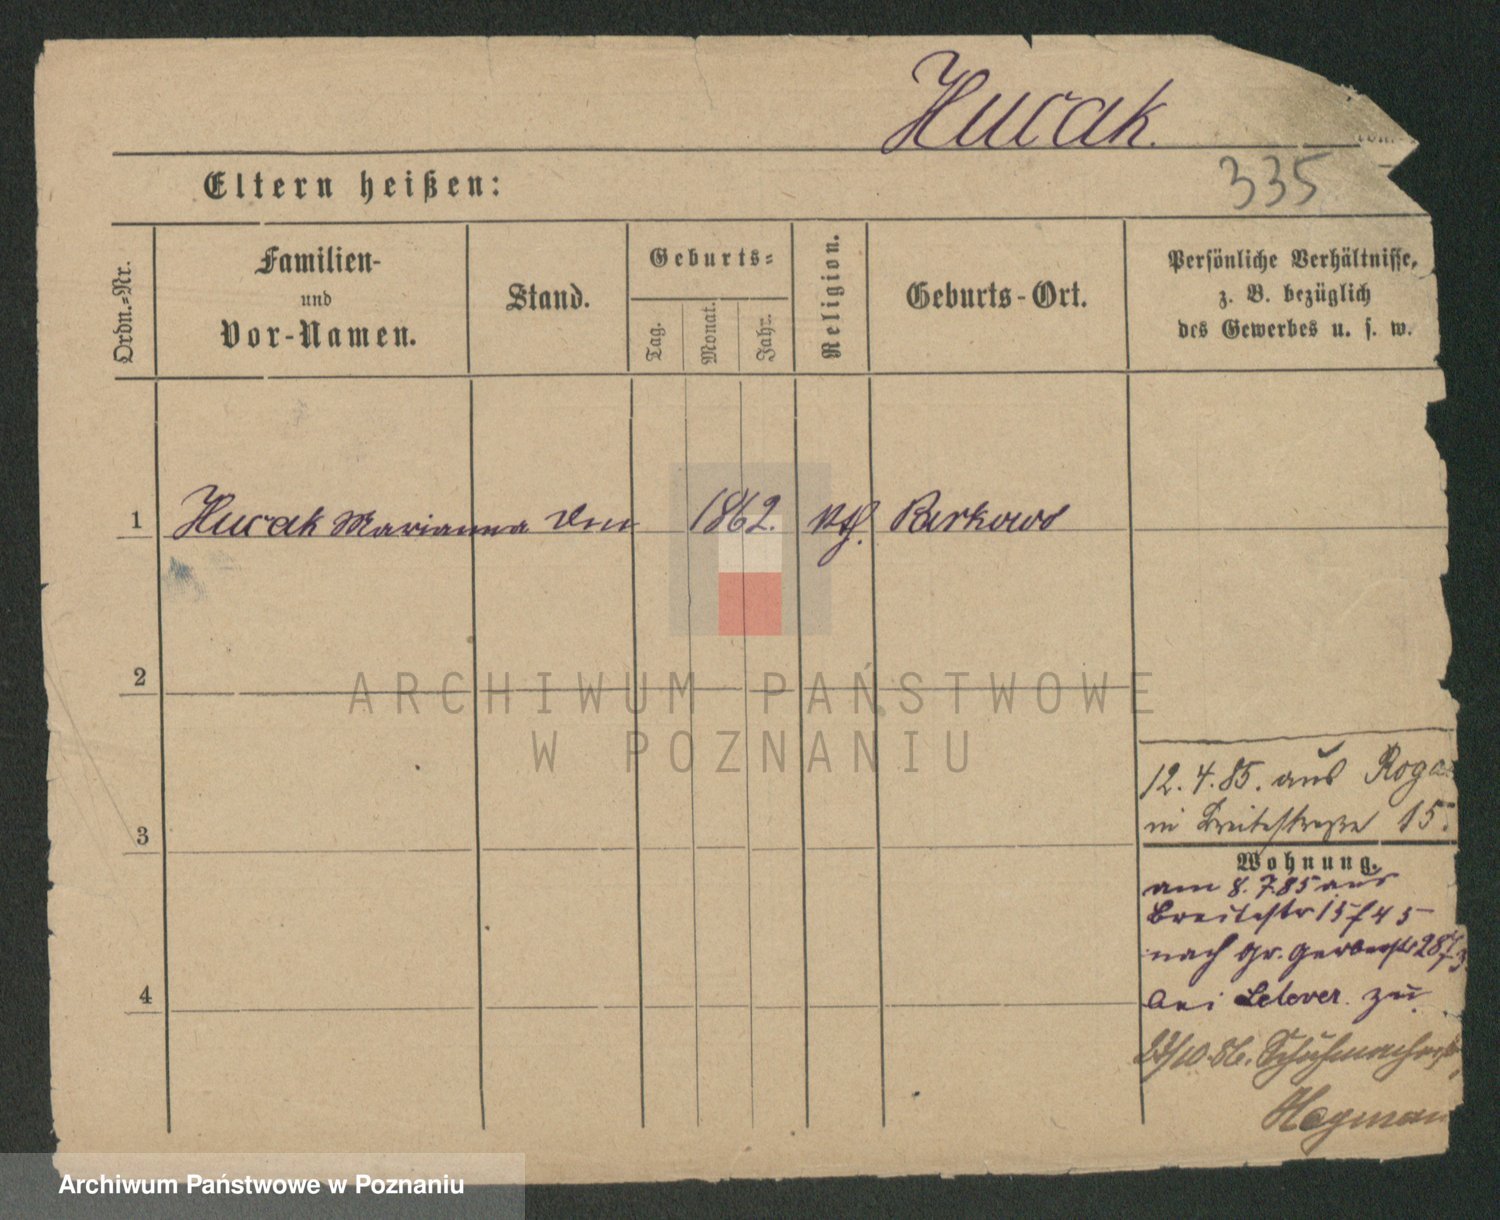 Hucak.
335
Eltern heißen:
Ordn.-Nr.
Familien-
und
Vor-Namen.
Stand.
Geburts-
Tag.
Monat.
Jahr.
Religion.
Geburts-Ort.
Persönliche Verhältnisse,
z. B. bezüglich
des Gewerbes u. s. w.
1 Hucak Marianna 1862. Kth. Berkowo
2
3
4
12.4.85. aus
in Breitestraße 15.
Wohnung.
am 8.7.85 aus
Breitestr 15/45
nach gr. Gerberstr 28/3
bei zu
/10.86. Schuhmacherstr
ARCHIWUM PAŃSTWOWE
W POZNANIU
Archiwum Państwowe w Poznaniu